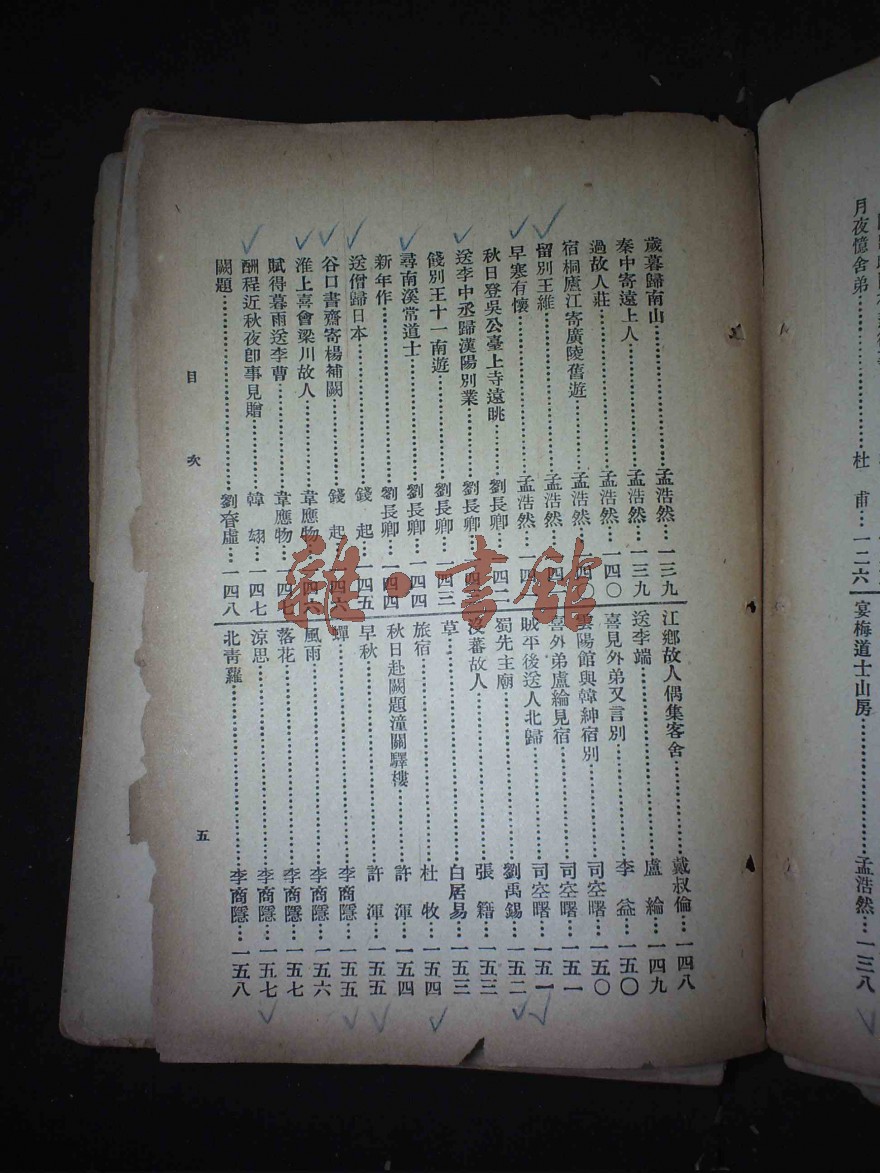 月夜憶舍弟…………………杜　甫…一二六
宴梅道士山房…………………孟浩然…一三八
歲暮歸南山…………………孟浩然…一三九
秦中寄遠上人…………………孟浩然…一三九
過故人莊…………………孟浩然…一四〇
宿桐廬江寄廣陵舊遊…………孟浩然…一四〇
留別王維…………………孟浩然…一四
早寒有懷…………………孟浩然…一四
秋日登吳公臺上寺遠眺………劉長卿…一四二
送李中丞歸漢陽別業…………劉長卿…一四
餞別王十一南遊………………劉長卿…一四三
尋南溪常道士…………………劉長卿…一四四
新年作…………………劉長卿…一四四
送僧歸日本…………………錢　起…一四五
谷口書齋寄楊補闕……………錢　起…一四六
淮上喜會梁川故人……………韋應物…一四六
賦得暮雨送李曹………………韋應物…一四七
酬程近秋夜卽事見贈…………韓　翃…一四七
闕題…………………劉昚虛…一四八
江鄉故人偶集客舍……………戴叔倫…一四八
送李端…………………盧　綸…一四九
喜見外弟又言別………………李　益…一五〇
雲陽館與韓紳宿別……………司空曙…一五〇
喜外弟盧綸見宿………………司空曙…一五一
賊平後送人北歸………………司空曙…一五一
蜀先主廟…………………劉禹錫…一五二
沒蕃故人…………………張　籍…一五三
草…………………白居易…一五三
旅宿…………………杜　牧…一五四
秋日赴闕題潼關驛樓…………許　渾…一五四
早秋…………………許　渾…一五五
蟬…………………李商隱…一五五
風雨…………………李商隱…一五六
落花…………………李商隱…一五七
涼思…………………李商隱…一五七
北靑蘿…………………李商隱…一五八
目次
五
雜·書館